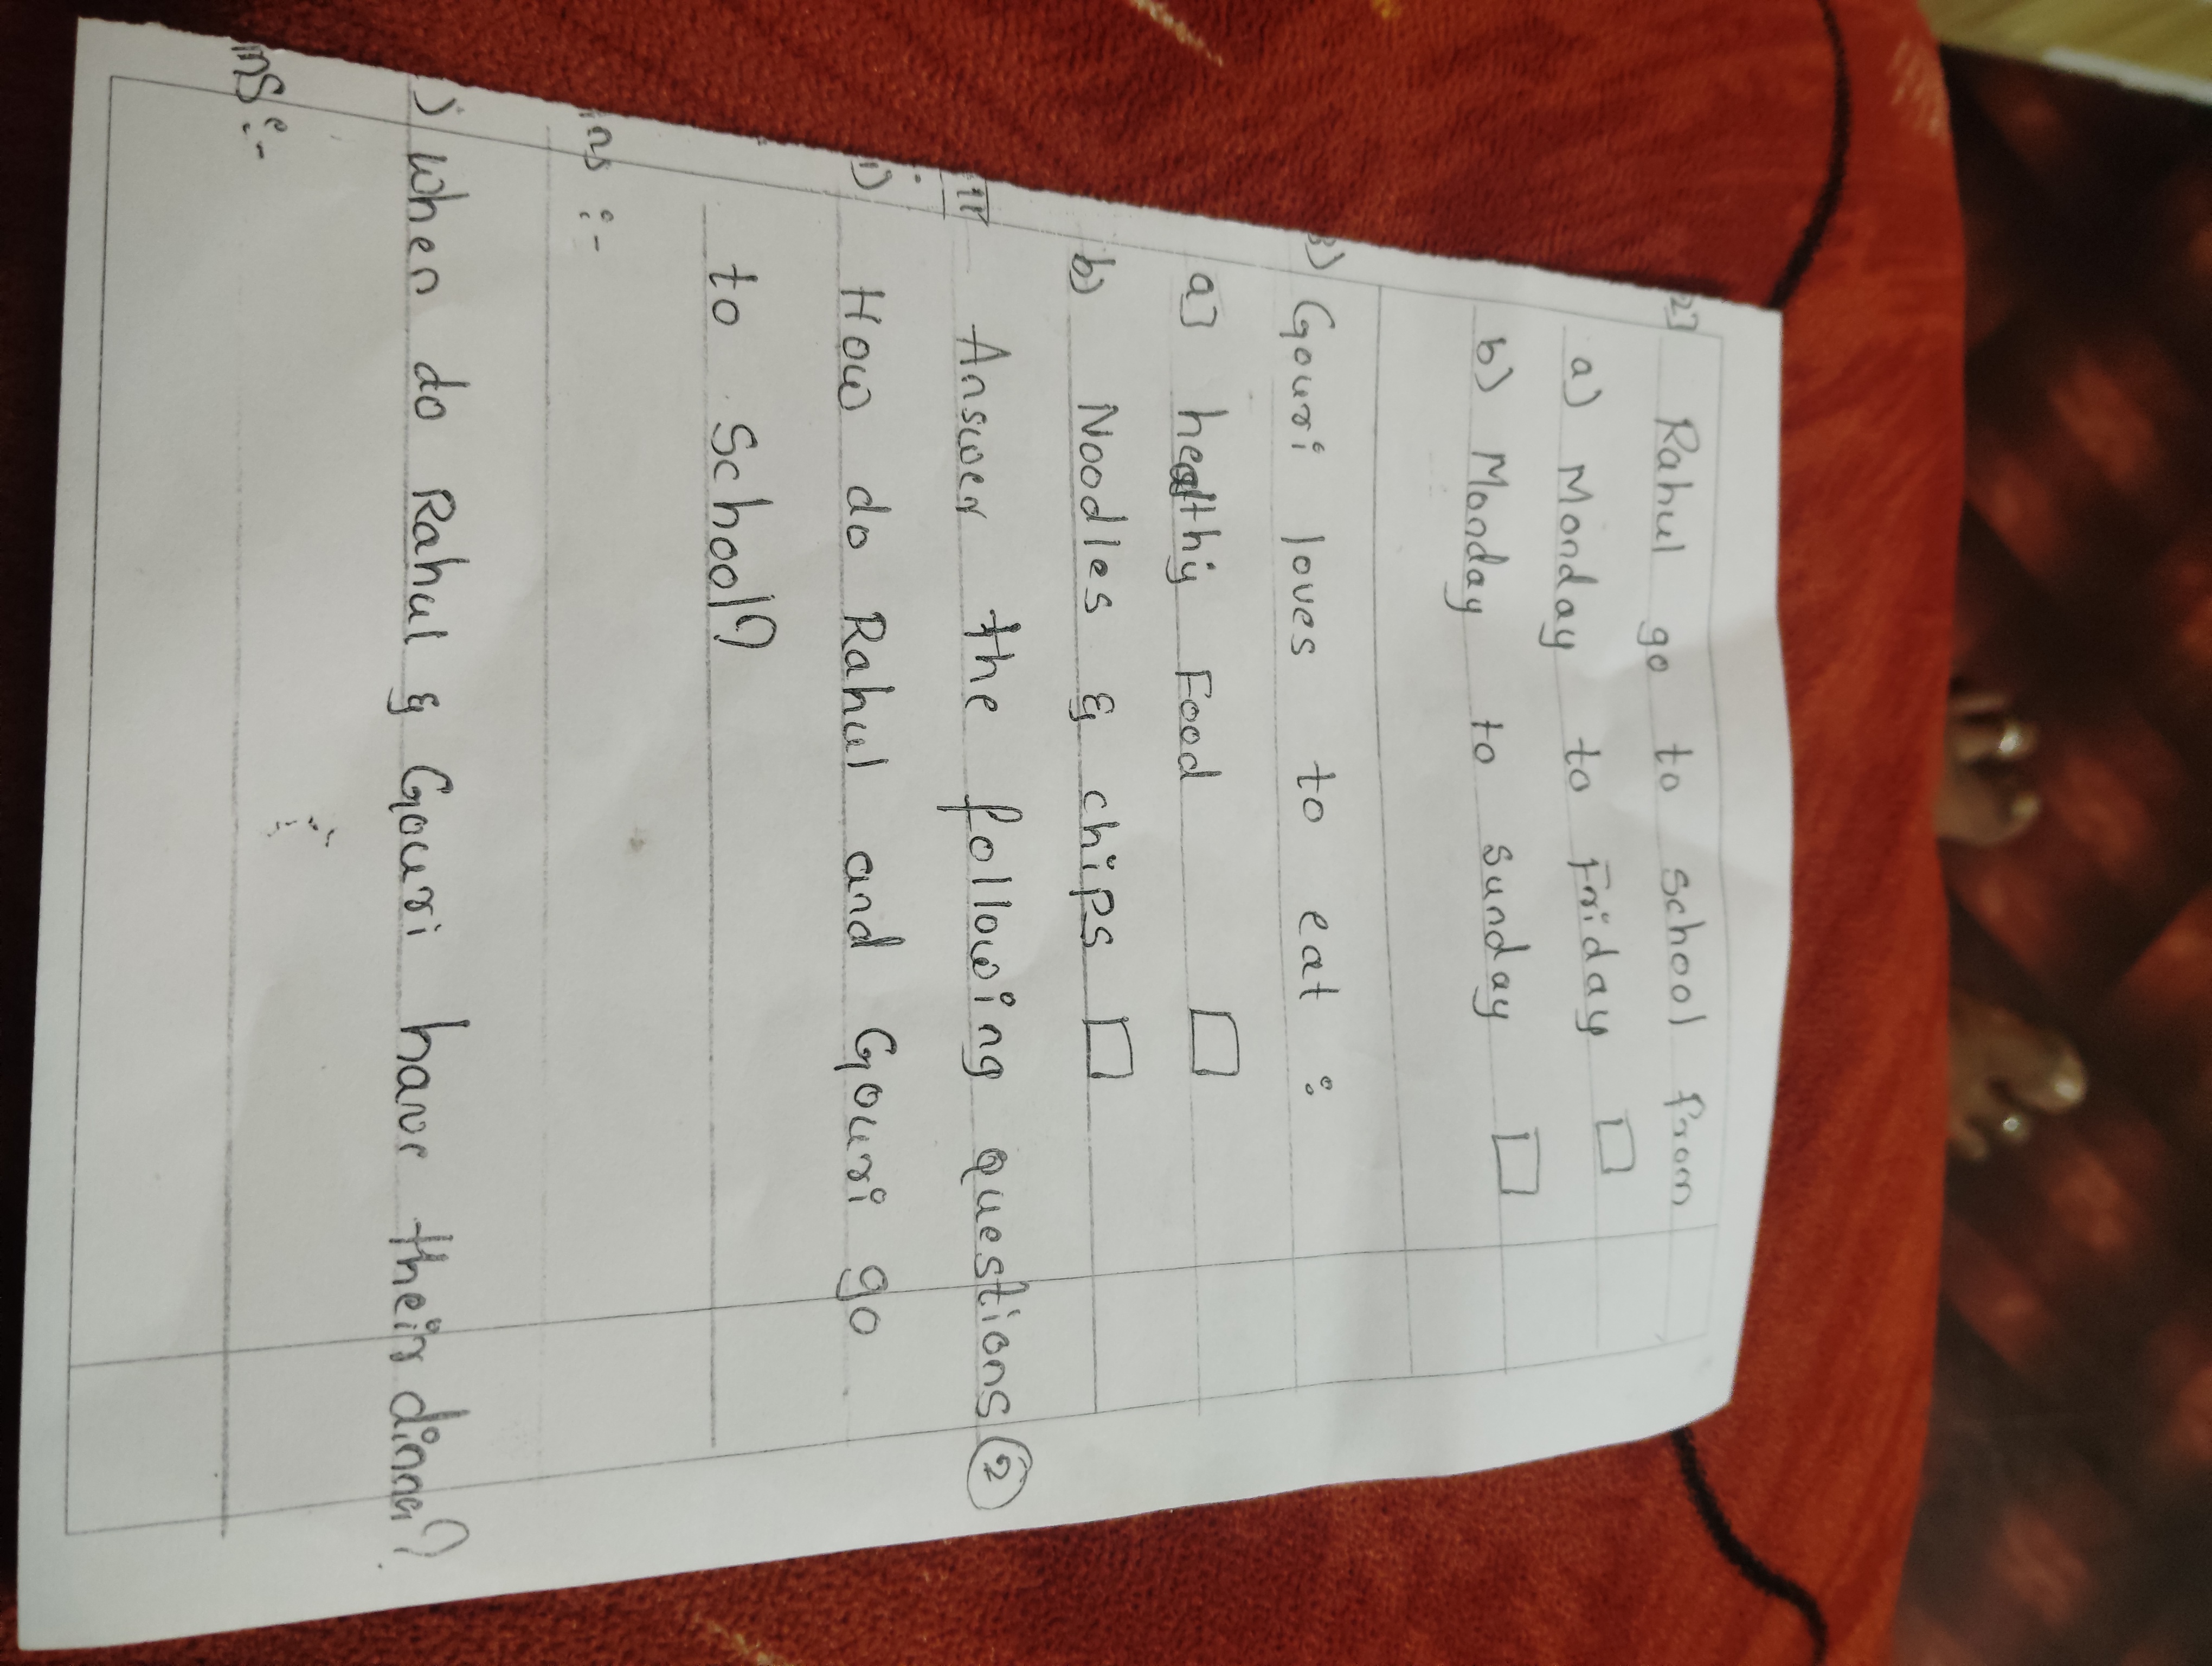 2] Rahul go to school from
a) Monday to Friday
b) Monday to sunday
3) Gouri loves to eat :
a] healthy Food
b) Noodles & chips
II Answer the following questions 2
1) How do Rahul and Gouri go
to School?
ns :-
) When do Rahul & Gouri have their dinner?
ns :-